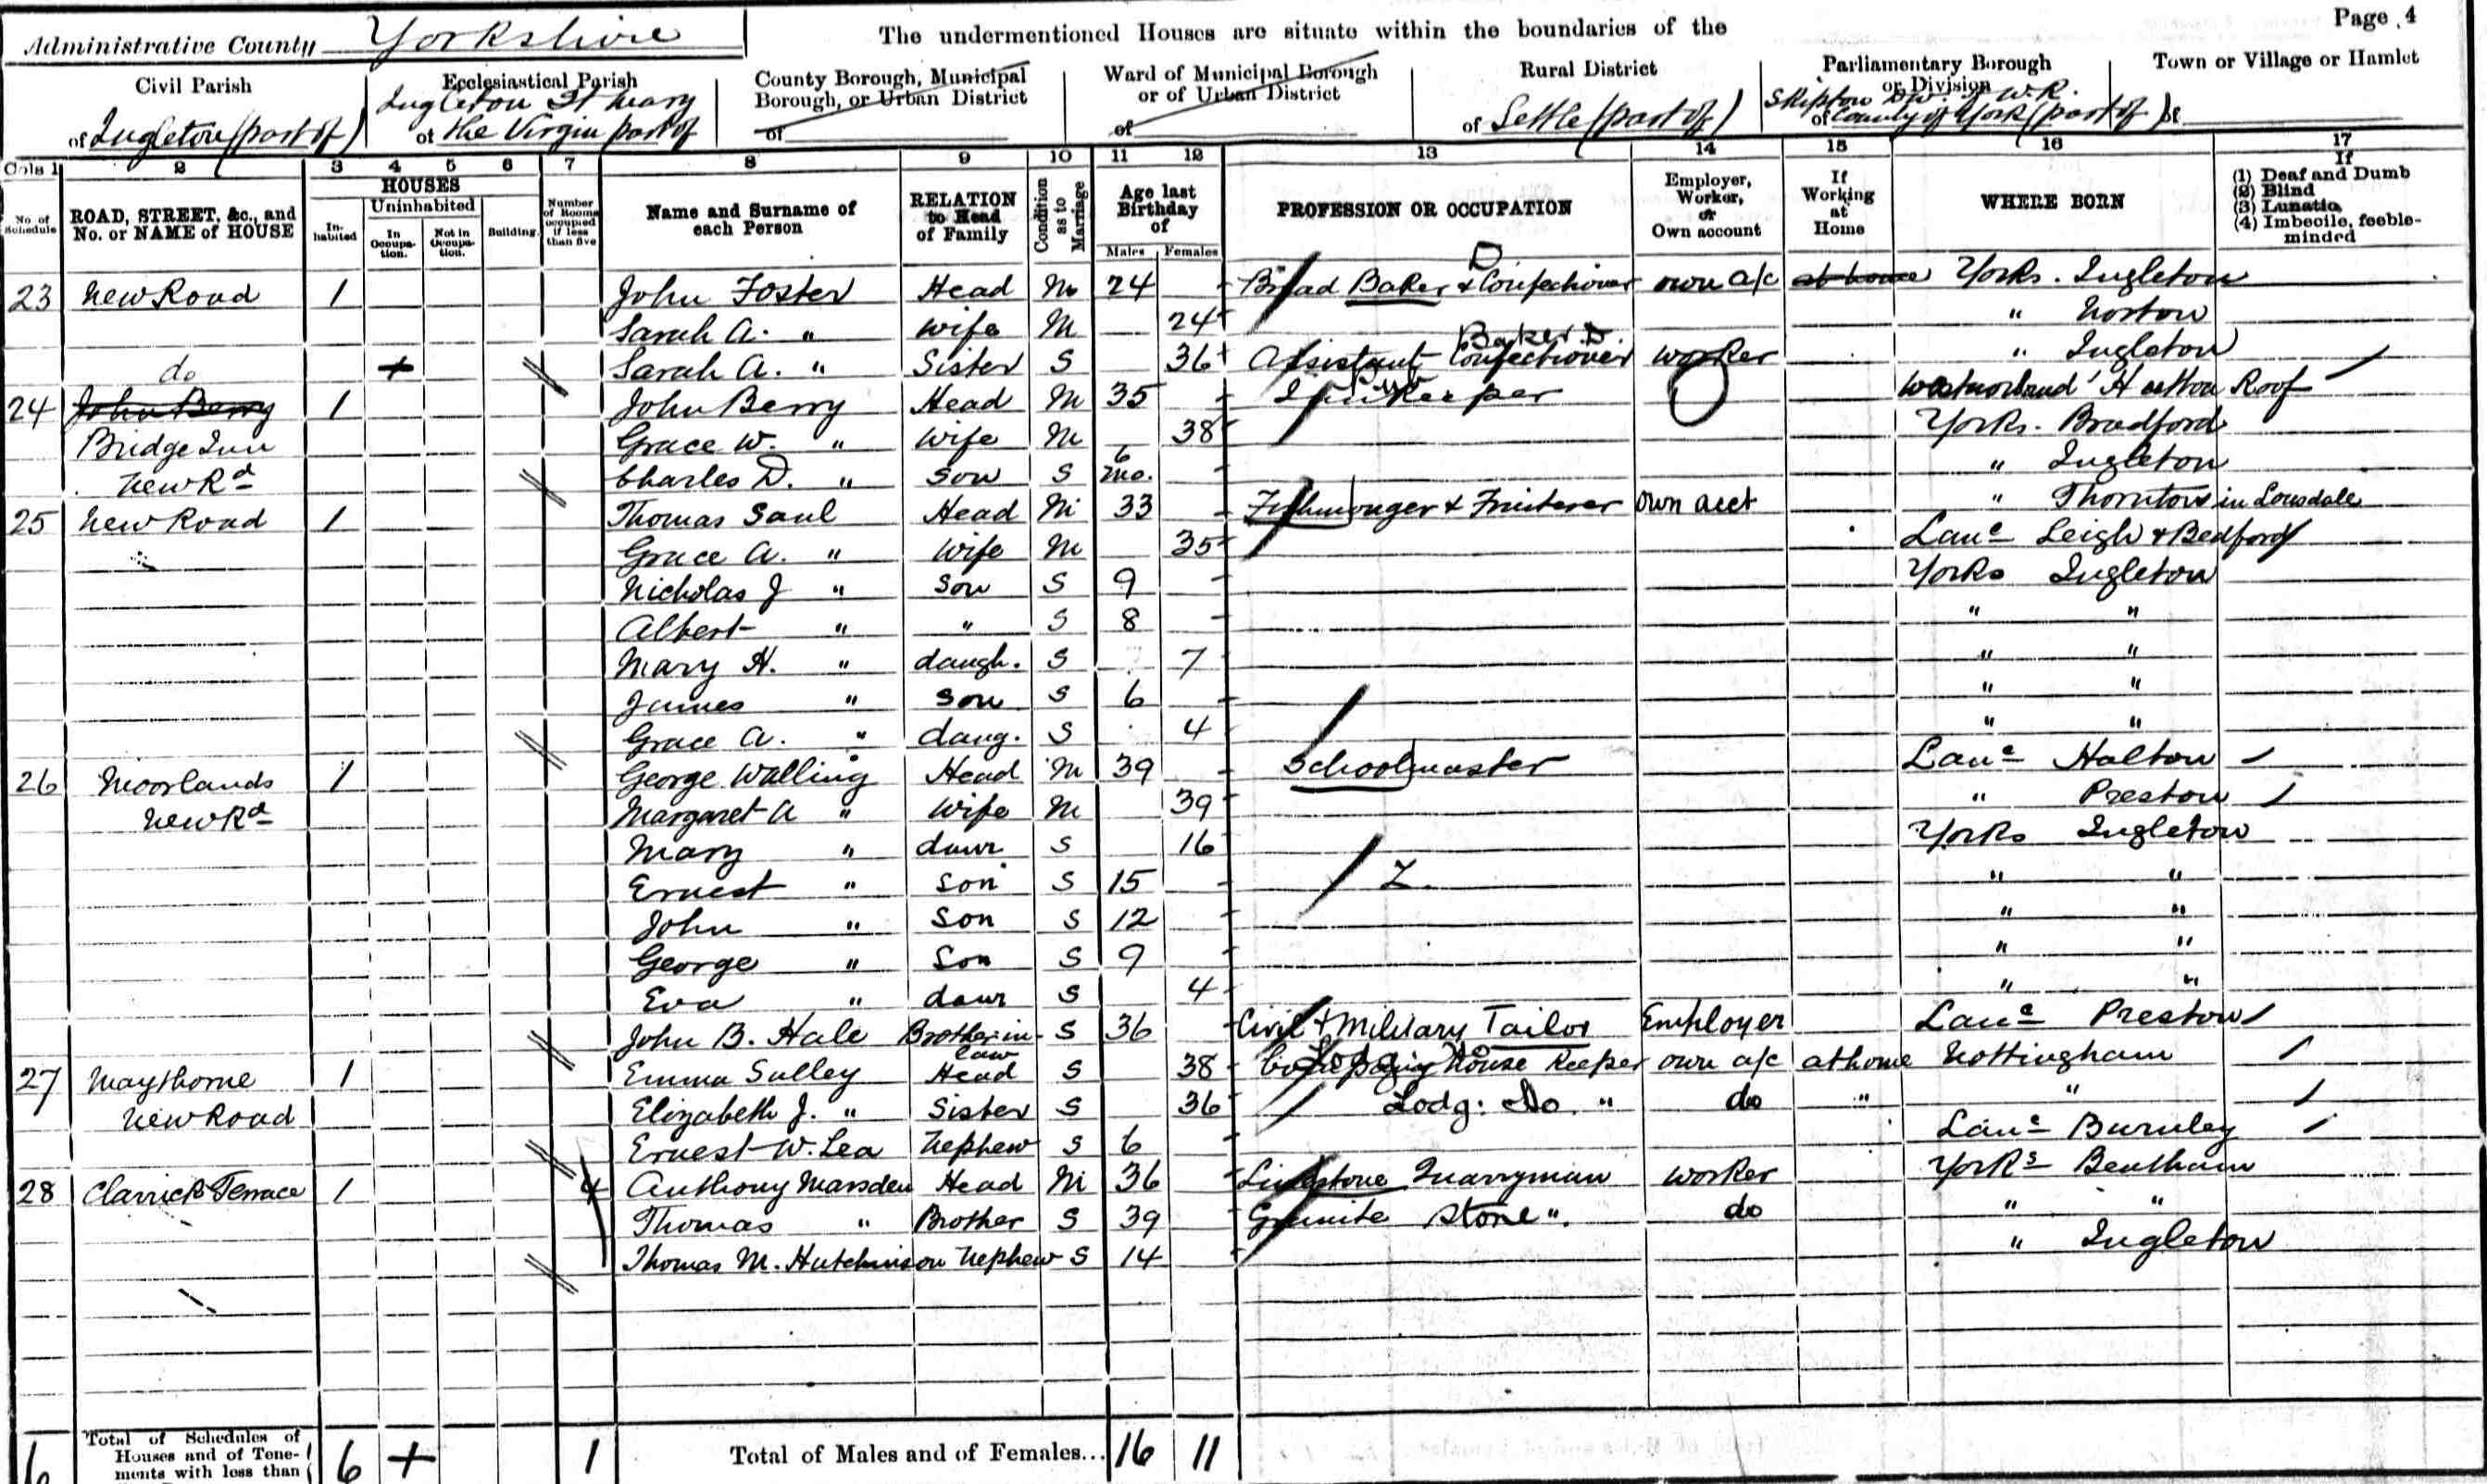 Page 4
Administrative County Yorkshire
The undermentioned Houses are situate within the boundaries of the
Civil Parish
of Ingleton (part of)
Ecclesiastical Parish
Ingleton St Mary
of the Virgin part of
County Borough, Municipal
Borough, or Urban District
of
Ward of Municipal Borough
or of Urban District
of
Rural District
of Settle (part of)
Parliamentary Borough
or Division
Skipton Div. W.R.
of County of York (part of)
Town or Village or Hamlet
of
Cols 1 2 3 4 5 6 7 8 9 10 11 12 13 14 15 16 17
No. of Schedule
ROAD, STREET, &c., and No. or NAME of HOUSE
HOUSES
Inhabited
Uninhabited
In Occupation.
Not in Occupation.
Building.
Number of Rooms occupied if less than five
Name and Surname of each Person
RELATION to Head of Family
Condition as to Marriage
Age last Birthday of
Males Females
PROFESSION OR OCCUPATION
Employer, Worker, or Own account
If Working at Home
WHERE BORN
If
(1) Deaf and Dumb
(2) Blind
(3) Lunatic
(4) Imbecile, feeble-minded
D
23 New Road 1 John Foster Head M 24 Bread Baker & Confectioner own a/c at home Yorks. Ingleton
Sarah A. " Wife M 24 " Norton
Baker D.
do + Sarah A. " Sister S 36 Assistant Confectioner worker " Ingleton
24 John Berry 1 John Berry Head M 35 Innkeeper Westmorland Hutton Roof
Bridge Inn Grace W. " Wife M 38 Yorks. Bradford
New Rd Charles D. " Son S 6 mo. " Ingleton
25 New Road 1 Thomas Saul Head M 33 Fishmonger & Fruiterer own acct " Thornton in Lonsdale
Grace A. " Wife M 35 Lanc Leigh & Bedford
Nicholas J " Son S 9 Yorks Ingleton
Albert " " S 8 " "
Mary H. " daugh. S 7 " "
James " Son S 6 " "
Grace A. " daug. S 4 " "
26 Moorlands 1 George Walling Head M 39 Schoolmaster Lanc Halton
New Rd Margaret A " Wife M 39 " Preston
Mary " daur S 16 Yorks Ingleton
Ernest " Son S 15 " "
John " Son S 12 " "
George " Son S 9 " "
Eva " daur S 4 " "
John B. Hale Brother in law S 36 Civil & Military Tailor Employer Lanc Preston
27 Maythorne 1 Emma Sulley Head S 38 Lodging House Keeper own a/c at home Nottingham
New Road Elizabeth J. " Sister S 36 Lodg: Do. " do " "
Ernest W. Lea Nephew S 6 Lanc Burnley
28 Clarrick Terrace 1 4 Anthony Marsden Head M 36 Limestone Quarryman worker Yorks Bentham
Thomas " Brother S 39 Granite Stone " do " "
Thomas M. Hutchinson Nephew S 14 " Ingleton
6 Total of Schedules of Houses and of Tenements with less than 6 + 1 Total of Males and of Females... 16 11